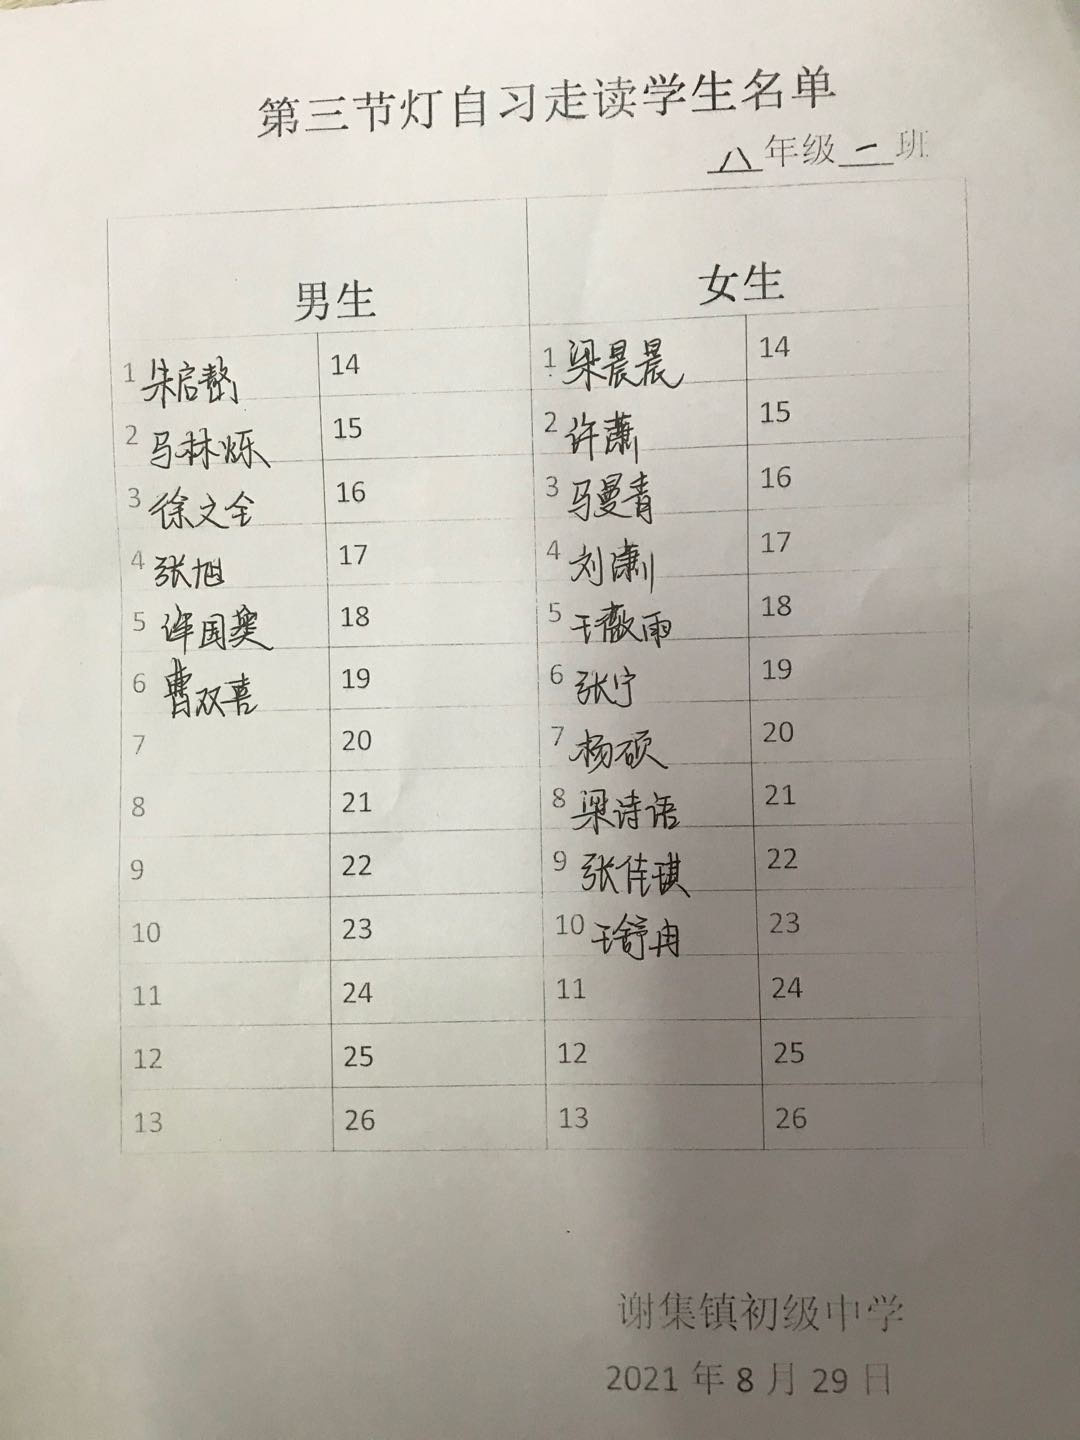 第三节灯自习走读学生名单
八年级一班
男生 女生
1 朱启 14 1 梁晨晨 14
2 马林烁 15 2 许潇 15
3 徐文全 16 3 马曼青 16
4 张旭 17 4 刘潇 17
5 许国 18 5 王薇雨 18
6 曹双喜 19 6 张宁 19
7 20 7 杨硕 20
8 21 8 梁诗语 21
9 22 9 张佳琪 22
10 23 10 王舒冉 23
11 24 11 24
12 25 12 25
13 26 13 26
谢集镇初级中学
2021年8月29日